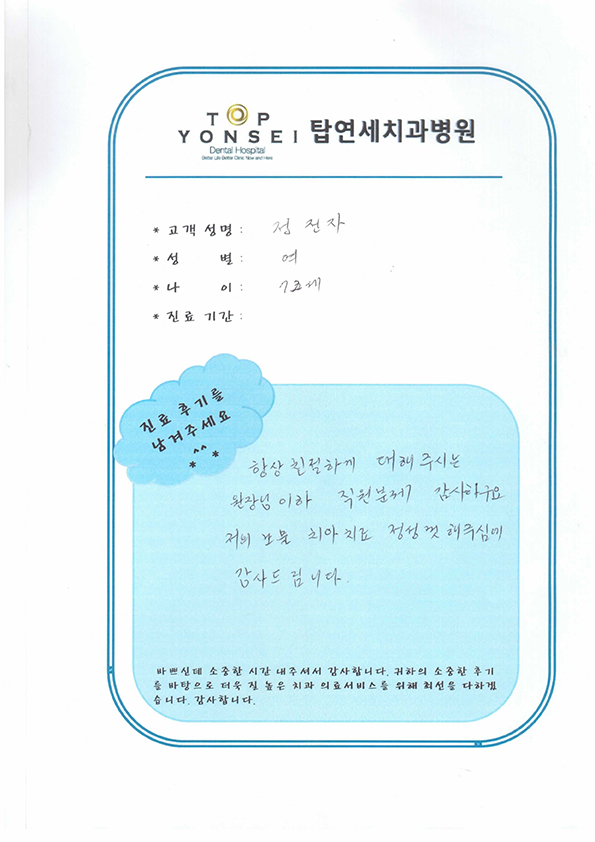 TOP
YONSEI 탑연세치과병원
Dental Hospital
Better Life Better Clinic Now and Here
* 고객 성명 : 정전자
* 성 별 : 여
* 나 이 : 73세
* 진료 기간 :
진료 후기를
남겨주세요
^^
* *
항상 친절하게 대해 주시는
원장님 이하 직원분께 감사하구요
저의 보물 치아 치료 정성껏 해주심에
감사드립니다.
바쁘신데 소중한 시간 내주셔서 감사합니다. 귀하의 소중한 후기
를 바탕으로 더욱 질 높은 치과 의료서비스를 위해 최선을 다하겠
습니다. 감사합니다.